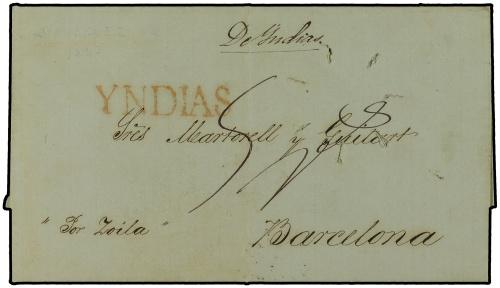 De Yndias.
YNDIAS
Srēs Martorell y
"Por Zoila"
Barcelona